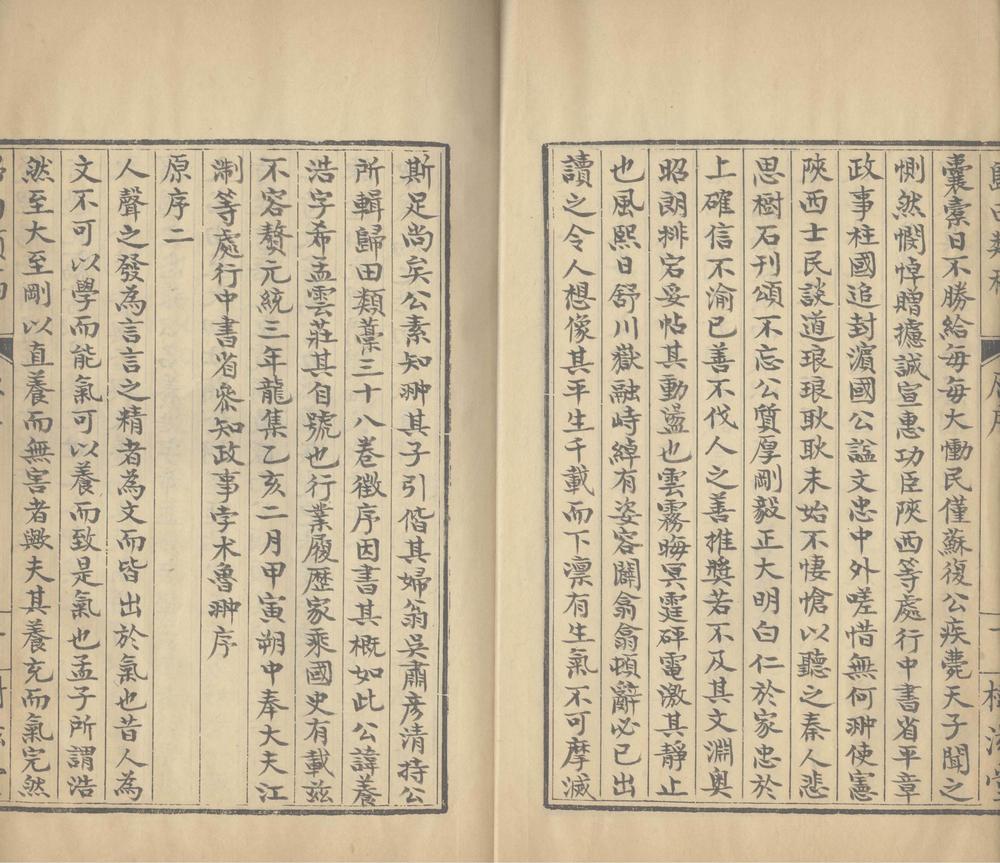 囊橐日不勝給每每大慟民僅蘇復公疾薨天子聞之
惻然憫悼贈攄誠宣惠功臣陝西等處行中書省平章
政事柱國追封濵國公謚文忠中外嗟惜無何翀使憲
陝西士民談道琅琅耿耿未始不悽愴以聽之秦人悲
思樹石刊頌不忘公質厚剛毅正大明白仁於家忠於
上確信不渝已善不伐人之善推奬若不及其文淵奥
昭朗排宕妥帖其動盪也雲霧晦冥霆砰電激其靜止
也風熙日舒川嶽融峙綽有姿容闢翕頓辭必已出
讀之令人想像其平生千載而下凛有生氣不可摩滅
斯足尚矣公素知翀其子引偕其婦翁吳肅彦清持公
所輯歸田類藁三十八卷徵序因書其概如此公諱養
浩字希孟雲莊其自號也行業履歷家乘國史有載兹
不容贅元統三年龍集乙亥二月甲寅朔中奉大夫江
淛等處行中書省叅知政事孛术魯翀序
原序二
人聲之發為言言之精者為文而皆出於氣也昔人為
文不可以學而能氣可以養而致是氣也孟子所謂浩
然至大至剛以直養而無害者歟夫其養充而氣完然